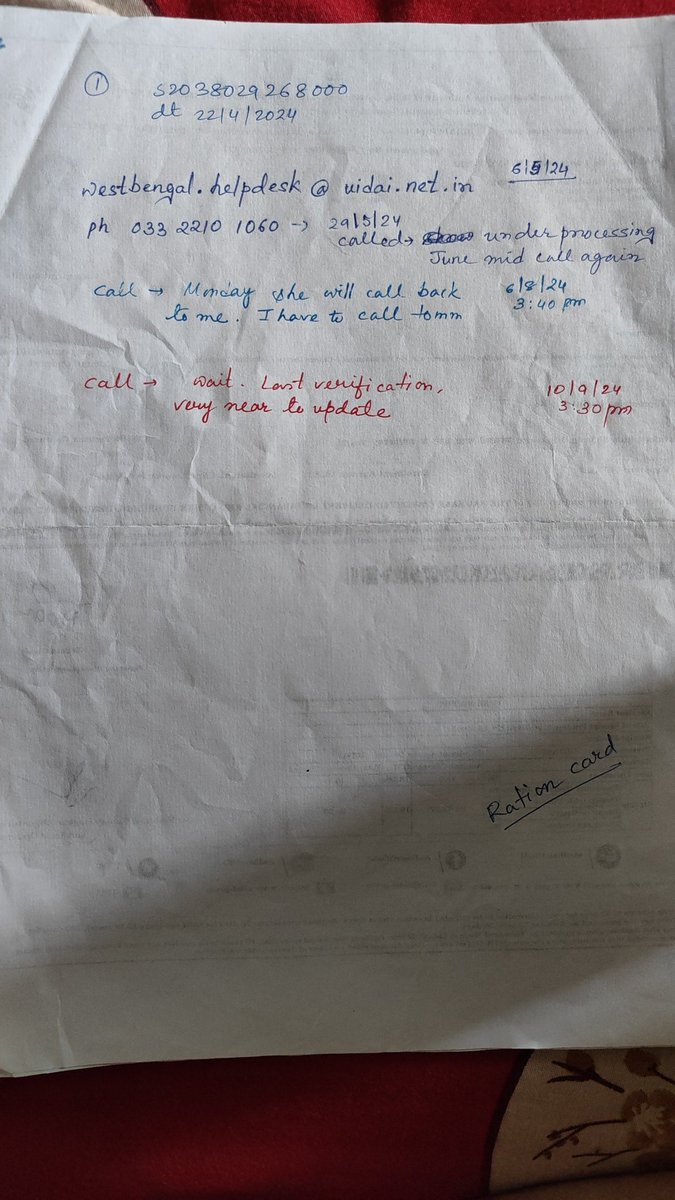 ①
S2038029268000
dt 22/4/2024
6/5/24
westbengal.helpdesk @ uidai.net.in
ph 033 2210 1060 → 29/5/24
called → under processing
June mid call again
call → Monday she will call back
to me. I have to call tomm
6/8/24
3:40 pm
call → wait. Last verification,
very near to update
10/9/24
3:30 pm
Ration card